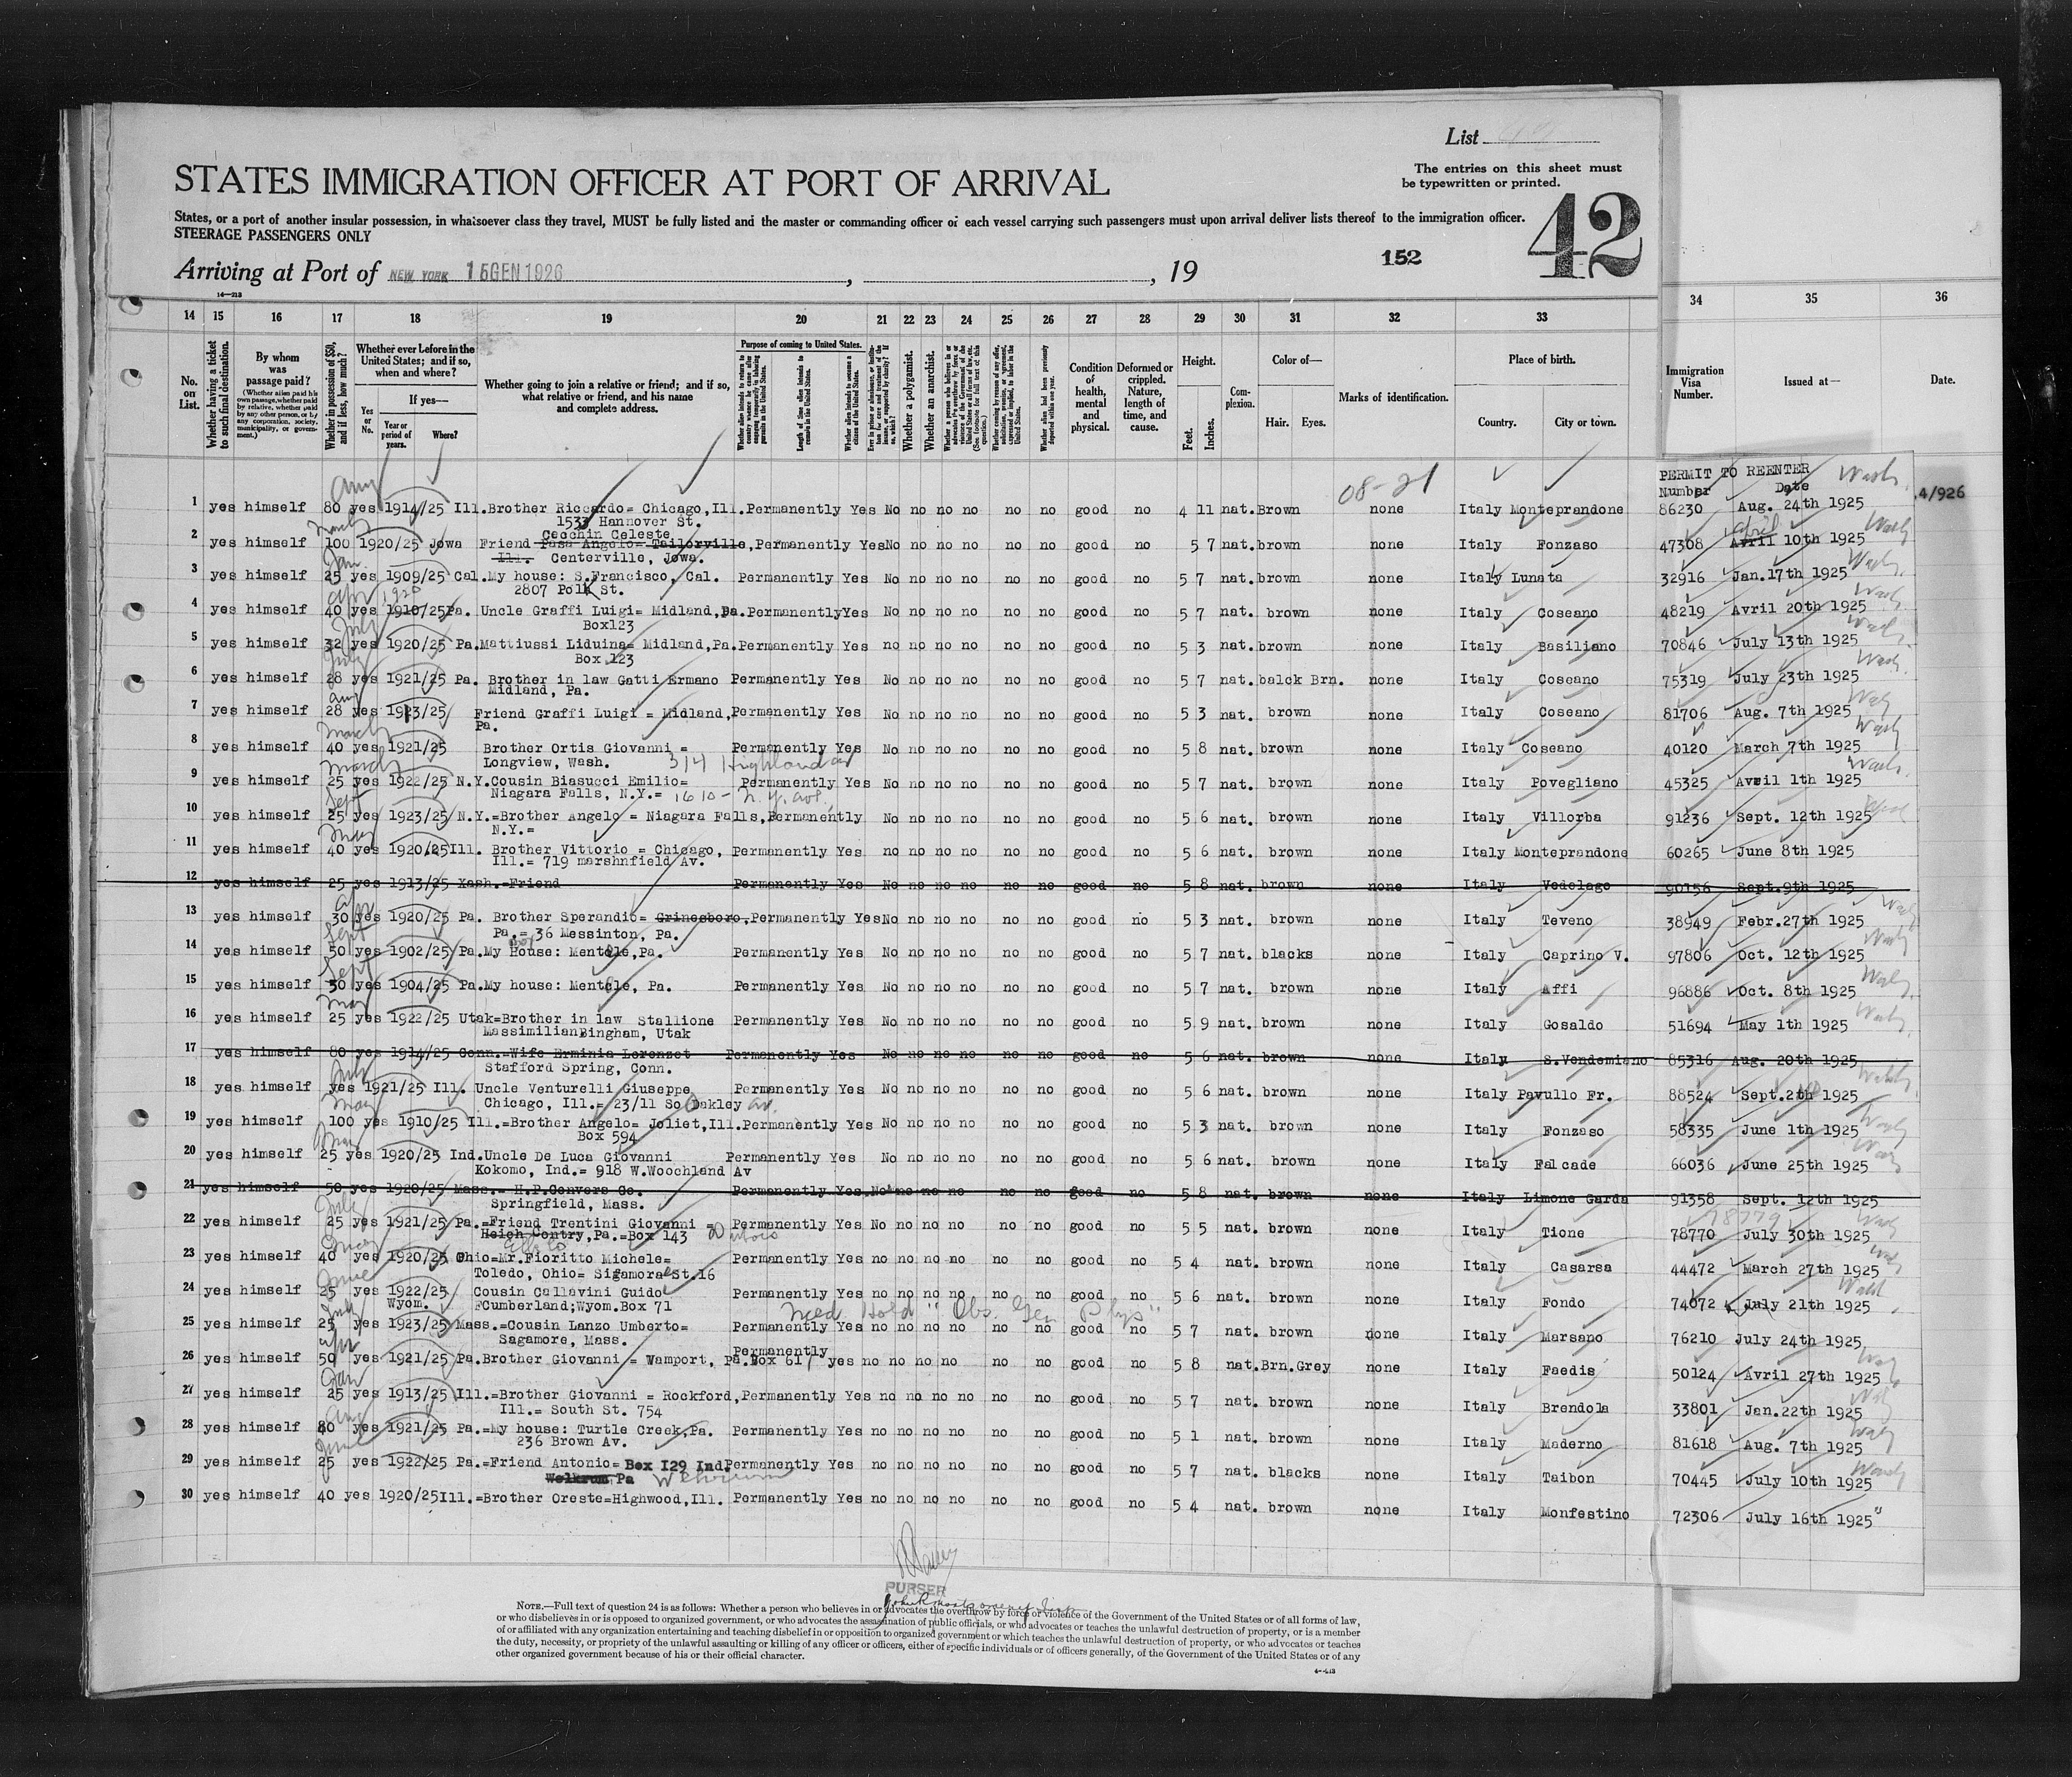 List
The entries on this sheet must
be typewritten or printed.
STATES IMMIGRATION OFFICER AT PORT OF ARRIVAL
42
States, or a port of another insular possession, in whatsoever class they travel, MUST be fully listed and the master or commanding officer of each vessel carrying such passengers must upon arrival deliver lists thereof to the immigration officer.
STEERAGE PASSENGERS ONLY
152
Arriving at Port of NEW YORK 15 GEN 1926 , , 19
14—213
14 15 16 17 18 19 20 21 22 23 24 25 26 27 28 29 30 31 32 33 34 35 36
No. on List.
Whether having a ticket to such final destination.
By whom was passage paid?
(Whether alien paid his own passage, whether paid by relative, whether paid by any other person, or by any corporation, society, municipality, or government.)
Whether in possession of $50, and if less, how much?
Whether ever before in the United States; and if so, when and where?
Yes or No.
If yes—
Year or period of years.
Where?
Whether going to join a relative or friend; and if so, what relative or friend, and his name and complete address.
Purpose of coming to United States.
Whether a polygamist.
Whether an anarchist.
Condition of health, mental and physical.
Deformed or crippled. Nature, length of time, and cause.
Height.
Feet. Inches.
Complexion.
Color of—
Hair. Eyes.
Marks of identification.
Place of birth.
Country. City or town.
Immigration Visa Number.
Issued at—
Date.
08-21
PERMIT TO REENTER Wash.
Number Date
.4/926
Aug
1 yes himself 80 yes 1914/25 Ill. Brother Riccardo= Chicago,Ill. Permanently Yes No no no no no no good no 4 11 nat. Brown none Italy Monteprandone 86230 Aug. 24th 1925
1533 Hannover St.
March
Cecchin Celeste
2 yes himself 100 1920/25 Jowa Friend Pasa Angelo= Tailorville, Permanently Yes No no no no no no good no 5 7 nat. brown none Italy Fonzaso 47308 Avril April 10th 1925 Wash
Ill. Centerville, Jowa.
Jan.
3 yes himself 25 yes 1909/25 Cal. My house: S.Francisco, Cal. Permanently Yes No no no no no no good no 5 7 nat. brown none Italy Lunata 32916 Jan.17th 1925 Wash.
2807 Polk St.
Apr 1920
4 yes himself 40 yes 1910/25 Pa. Uncle Graffi Luigi= Midland,Pa. Permanently Yes No no no no no no good no 5 7 nat. brown none Italy Coseano 48219 Avril 20th 1925 Wash.
Box123
July
5 yes himself 32 yes 1920/25 Pa. Mattiussi Liduina= Midland,Pa. Permanently Yes no no no no no no good no 5 3 nat. brown none Italy Basiliano 70846 July 13th 1925 Wash
Box 123
July
6 yes himself 28 yes 1921/25 Pa. Brother in law Gatti Ermano Permanently Yes No no no no no no good no 5 7 nat. balck Brn. none Italy Coseano 75319 July 23th 1925 Wash.
Midland, Pa.
Aug
7 yes himself 28 yes 1923/25 Friend Graffi Luigi = Midland, Permanently Yes No no no no no no good no 5 3 nat. brown none Italy Coseano 81706 Aug. 7th 1925
Pa.
March
8 yes himself 40 yes 1921/25 Brother Ortis Giovanni = Permanently Yes No no no no no no good no 5 8 nat. brown none Italy Coseano 40120 March 7th 1925 Wash
Longview, Wash. 314 Highland av
March
9 yes himself 25 yes 1922/25 N.Y. Cousin Biasucci Emilio= Permanently Yes No no no no no no good no 5 7 nat. brown none Italy Povegliano 45325 Avril 1th 1925 Wash.
Niagara Falls, N.Y.= 1610 - N.Y. ave.
Sept
10 yes himself 25 yes 1923/25 N.Y.=Brother Angelo = Niagara Falls, Permanently No no no no no no good no 5 6 nat. brown none Italy Villorba 91236 Sept. 12th 1925
N.Y.=
May
11 yes himself 40 yes 1920/25 Ill. Brother Vittorio = Chicago, Permanently Yes no no no no no no good no 5 6 nat. brown none Italy Monteprandone 60265 June 8th 1925
Ill.= 719 marshnfield Av.
12 yes himself 25 yes 1913/25 Xash.=Friend Permanently Yes No no no no no no good no 5 8 nat. brown none Italy Vedelago 90156 Sept. 9th 1925
Apr
13 yes himself 30 yes 1920/25 Pa. Brother Sperandio= Grinesboro, Permanently Yes No no no no no no good no 5 3 nat. brown none Italy Teveno 38949 Febr.27th 1925
Pa.= 36 Messinton, Pa.
Sept
14 yes himself 50 yes 1902/25 Pa. My House: Mentcle,Pa. Permanently Yes No no no no no no good no 5 7 nat. blacks none Italy Caprino V. 97806 Oct. 12th 1925 Wash
Sept
15 yes himself 50 yes 1904/25 Pa. My house: Mentcle, Pa. Permanently Yes No no no no no no good no 5 7 nat. brown none Italy Affi 96886 Oct. 8th 1925 Wash.
May
16 yes himself 25 yes 1922/25 Utak=Brother in law Stallione Permanently Yes No no no no no no good no 5 9 nat. brown none Italy Gosaldo 51694 May 1th 1925 Wash.
Massimilian Bingham, Utak
17 yes himself 80 yes 1914/25 Conn.=Wife Erminia Lorenzet Permanently Yes No no no no no no good no 5 6 nat. brown none Italy S.Vendemiano 85316 Aug. 20th 1925
Stafford Spring, Conn.
July
18 yes himself yes 1921/25 Ill. Uncle Venturelli Giuseppe Permanently Yes No no no no no no good no 5 6 nat. brown none Italy Pavullo Fr. 88524 Sept.2th 1925 Wash.
Chicago, Ill.= 23/11 So Oakley av.
May
19 yes himself 100 yes 1910/25 Ill.=Brother Angelo= Joliet,Ill. Permanently Yes No no no no no no good no 5 3 nat. brown none Italy Fonzaso 58335 June 1th 1925 Wash
Box 594
May
20 yes himself 25 yes 1920/25 Ind. Uncle De Luca Giovanni Permanently Yes No no no no no no good no 5 6 nat. brown none Italy Falcade 66036 June 25th 1925
Kokomo, Ind.= 918 W.Woochland Av
21 yes himself 50 yes 1920/25 Mass.= H.P.Convers Co. Permanently Yes No no no no no no good no 5 8 nat. brown none Italy Limone Garda 91358 Sept. 12th 1925
Springfield, Mass.
July 78779
22 yes himself 25 yes 1921/25 Pa.=Friend Trentini Giovanni = Permanently Yes No no no no no no good no 5 5 nat. brown none Italy Tione 78770 July 30th 1925
Heigh Contry, Pa.=Box 143
23 yes himself 40 yes 1920/25 Ohio=Mr.Fioritto Michele= Permanently Yes no no no no no no good no 5 4 nat. brown none Italy Casarsa 44472 March 27th 1925
Toledo, Ohio= Sigamora St.16
June
24 yes himself 25 yes 1922/25 Cousin Callavini Guido Permanently Yes no no no no no no good no 5 6 nat. brown none Italy Fondo 74072 July 21th 1925
Wyom. FCumberland;Wyom.Box 71
Med Hold "Obs. Gen Phys"
July
25 yes himself 25 yes 1923/25 Mass.=Cousin Lanzo Umberto= Permanently Yes no no no no no no good no 5 7 nat. brown none Italy Marsano 76210 July 24th 1925
Sagamore, Mass.
Apr Permanently
26 yes himself 50 yes 1921/25 Pa. Brother Giovanni = Wamport, Pa.Box 617 yes no no no no no no good no 5 8 nat. Brn.Grey none Italy Faedis 50124 Avril 27th 1925
Jan
27 yes himself 25 yes 1913/25 Ill.=Brother Giovanni = Rockford, Permanently Yes no no no no no no good no 5 7 nat. brown none Italy Brendola 33801 Jan.22th 1925
Ill.= South St. 754
Aug
28 yes himself 80 yes 1921/25 Pa.=My house: Turtle Creek,Pa. Permanently Yes no no no no no no good no 5 1 nat. brown none Italy Maderno 81618 Aug. 7th 1925
236 Brown Av.
June
29 yes himself 25 yes 1922/25 Pa.=Friend Antonio= Box 129 Ind. Permanently Yes no no no no no no good no 5 7 nat. blacks none Italy Taibon 70445 July 10th 1925
Welkrum, Pa Wehrum
30 yes himself 40 yes 1920/25 Ill.=Brother Oreste=Highwood,Ill. Permanently Yes no no no no no no good no 5 4 nat. brown none Italy Monfestino 72306 July 16th 1925 "
PURSER
NOTE.—Full text of question 24 is as follows: Whether a person who believes in or advocates the overthrow by force or violence of the Government of the United States or of all forms of law,
or who disbelieves in or is opposed to organized government, or who advocates the assassination of public officials, or who advocates or teaches the unlawful destruction of property, or is a member
of or affiliated with any organization entertaining and teaching disbelief in or opposition to organized government or which teaches the unlawful destruction of property, or who advocates or teaches
the duty, necessity, or propriety of the unlawful assaulting or killing of any officer or officers, either of specific individuals or of officers generally, of the Government of the United States or of any
other organized government because of his or their official character.